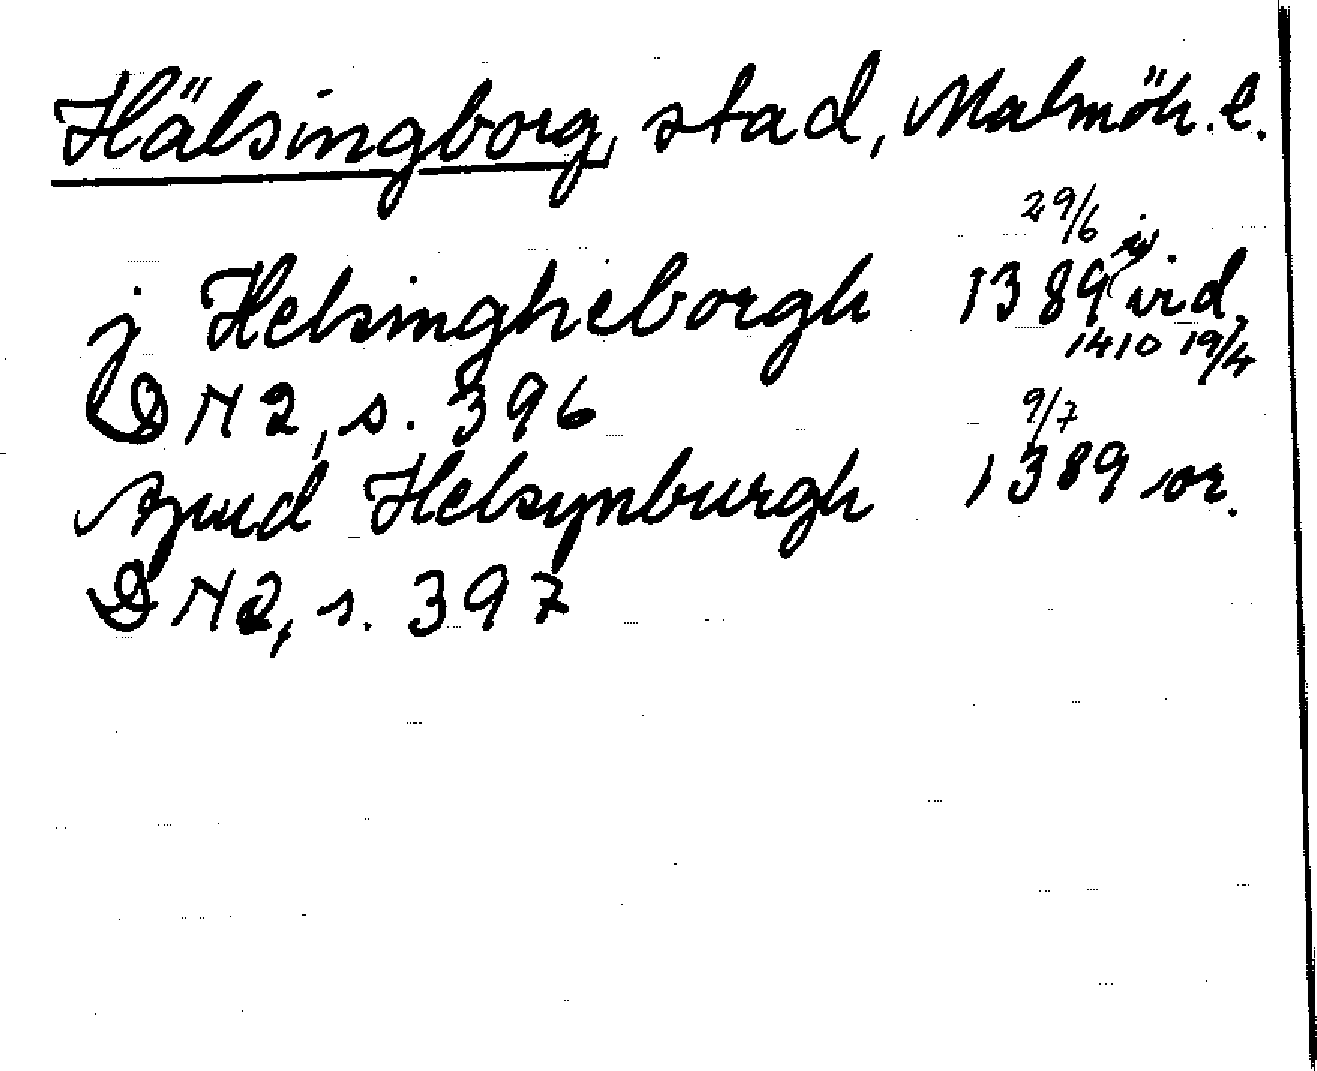 Hälsingborg, stad, Malmöh. l.
29/6
j Helsingheborgh 1389 i vid.
1410 19/4
DN 2, s. 396
9/7
Apud Helsynburgh 1389 or.
DN 2, s. 397